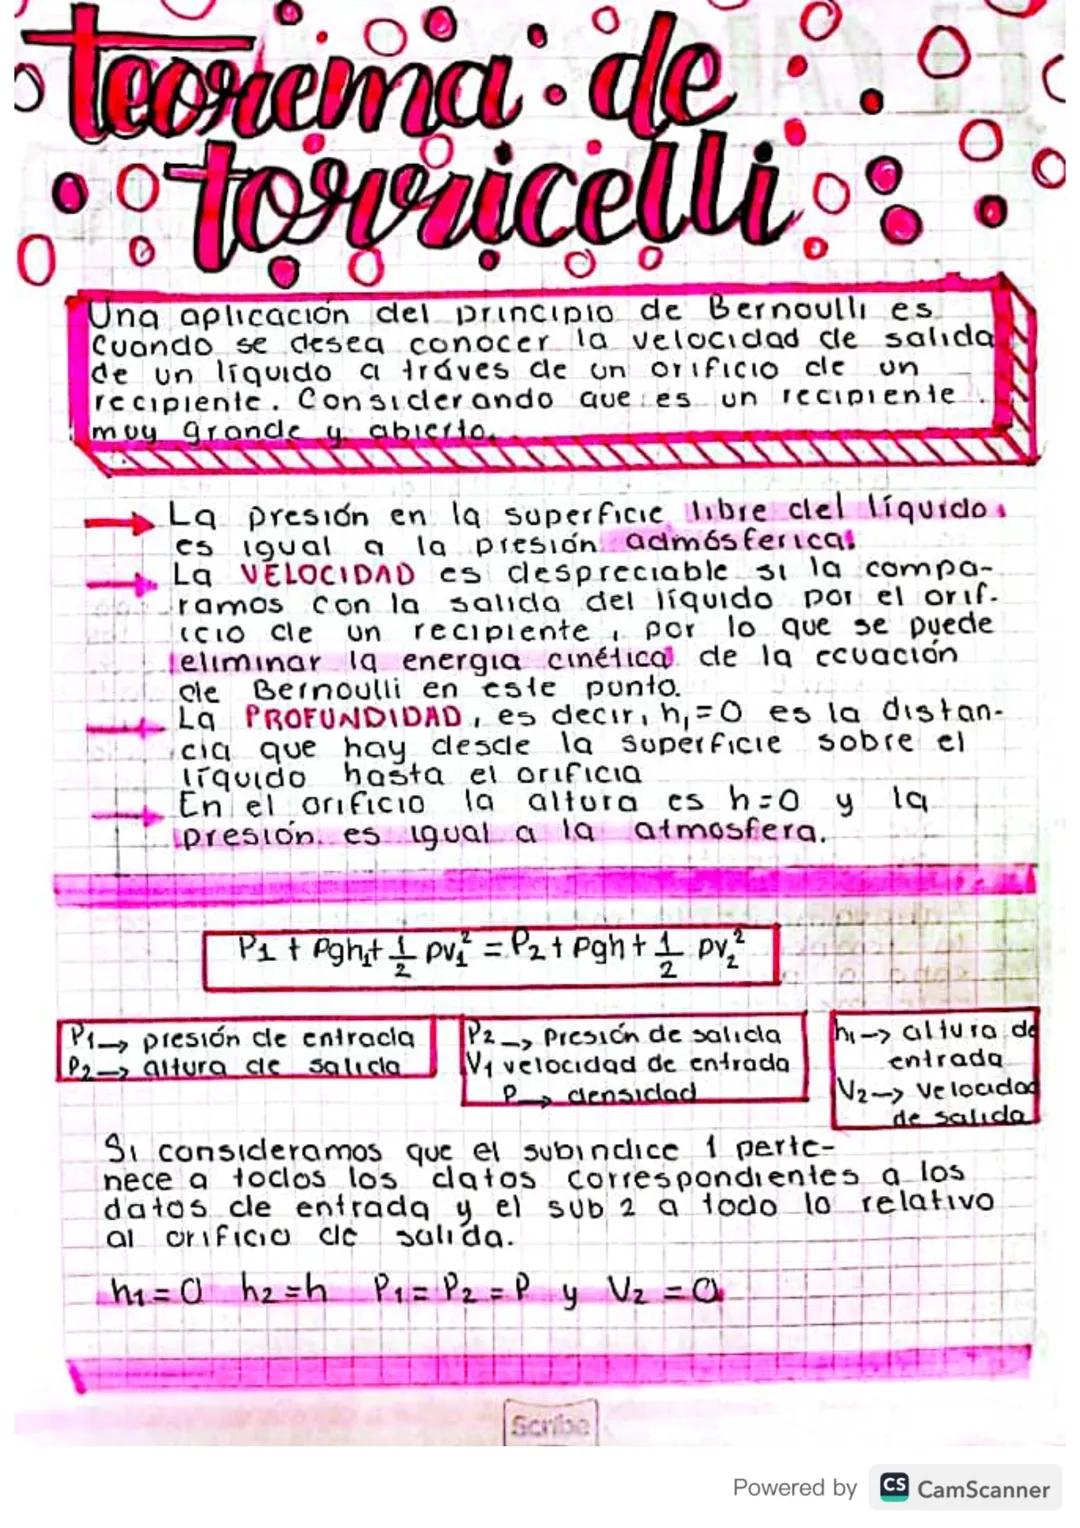 teorema de
torricelli
Una aplicación del principio de Bernoulli es
Cuando se desea conocer la velocidad de salida
de un líquido a tráves de un orificio de un
recipiente. Considerando que es un recipiente
muy grande y abierto.
→ La presión en la superficie libre del líquido
es igual a la presión admósferica.
→ La VELOCIDAD es despreciable si la compa-
ramos con la salida del líquido por el orif-
icio de un recipiente, por lo que se puede
eliminar la energia cinética de la ecuación
de Bernoulli en este punto.
→ La PROFUNDIDAD, es decir, h₁=0 es la distan-
cia que hay desde la superficie sobre el
líquido hasta el orificia
→ En el orificio la altura es h=0 y la
presión es igual a la atmosfera.
P1 + ρgh₁ + 1/2 ρv₁² = P2 + ρgh + 1/2 ρv₂²
P1→ presión de entrada
P2→ altura de salida
P2→ Presión de salida
V1 velocidad de entrada
ρ→ densidad
h1→ altura de
entrada
V2→ Velocidad
de salida
Si consideramos que el subindice 1 perte-
nece a todos los datos correspondientes a los
datos de entrada y el sub 2 a todo lo relativo
al orificio de salida.
h1=0 h2=h P1=P2=P y V2=0
Scribe
Powered by CS CamScanner